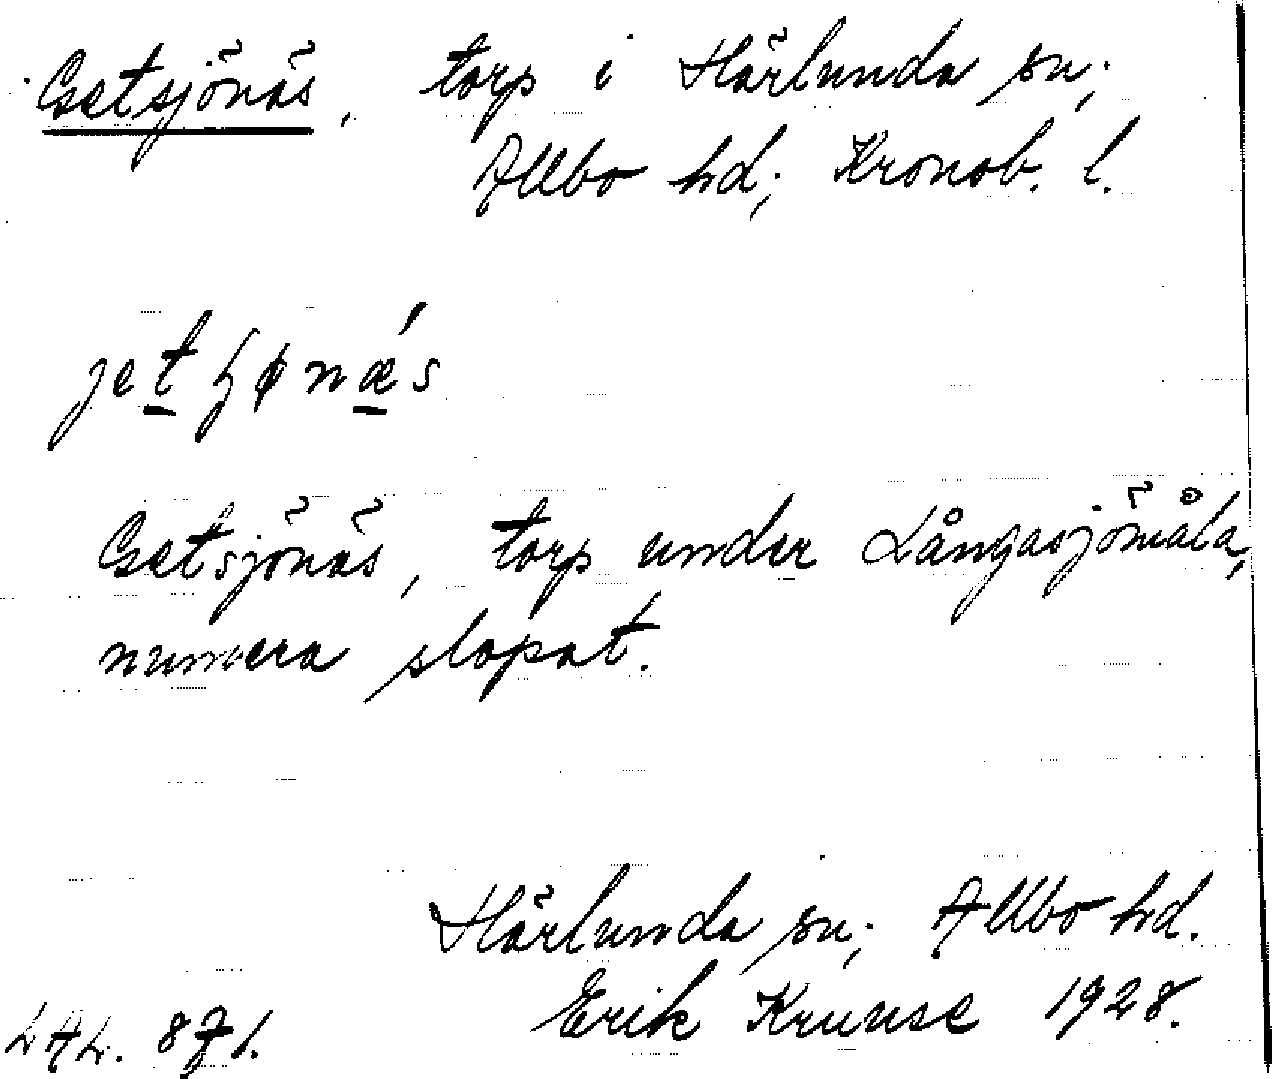 Getsjönäs, torp i Härlunda sn;
Allbo hd; Kronob. l.
Getsjönäs, torp under Långasjömåla,
numera slopat.
Härlunda sn; Allbo hd.
Erik Kruuse 1928.
LAL. 871.